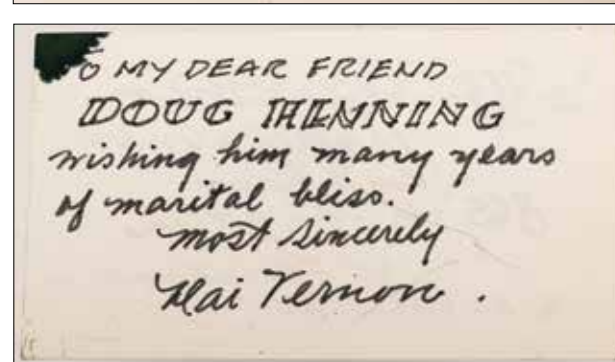 O MY DEAR FRIEND
DOUG HENNING
wishing him many years
of marital bliss.
most sincerely
Dai Vernon.